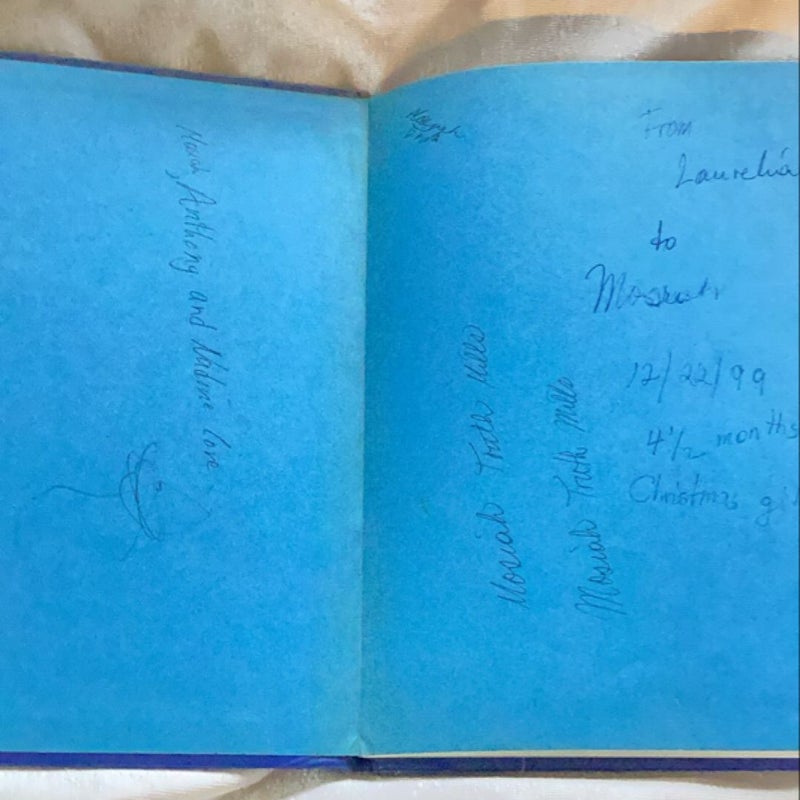 Anthony and Nadine love
From
Laurelia
to
Mosiah
12/22/99
4 1/2 months
Christmas
Mosiah Truth Mills
Mosiah Truth Mills